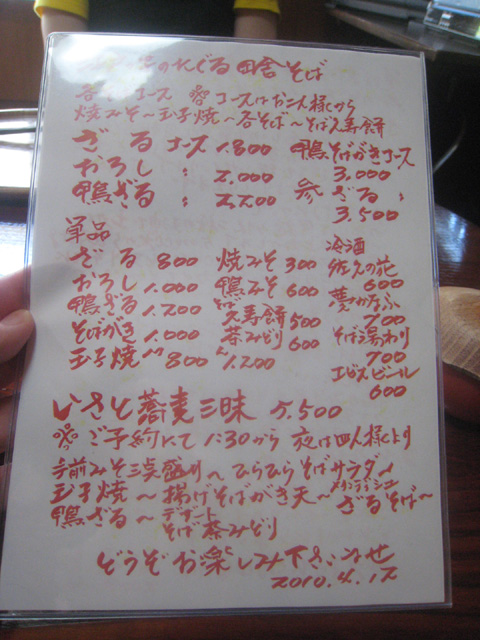 そば
コース コースはお二人様から
焼みそ〜玉子焼〜各そば〜そば久寿餅
ざる コース 1.800
おろし 〃 2.000
鴨ざる 〃 2,200
鴨そばがきコース
3.000
ざる 〃
3.500
単品
ざる 800
おろし 1.000
鴨ざる 1.200
そばがき 1.000
玉子焼 大 800
焼みそ 300
鴨みそ 600
そば久寿餅 500
茶みどり 600
1.200
冷酒
佐久の花
600
700
そば湯わり
700
エビスビール
600
いさと蕎麦三昧 5.500
ご予約にて 1:30から 夜は四人様より
手前みそ三点盛り〜ひらひらそばサラダ〜
玉子焼〜揚げそばがき天〜ざるそば〜
鴨ざる〜デザート
そば茶みどり
どうぞお楽しみ下さいませ
2010.4.12